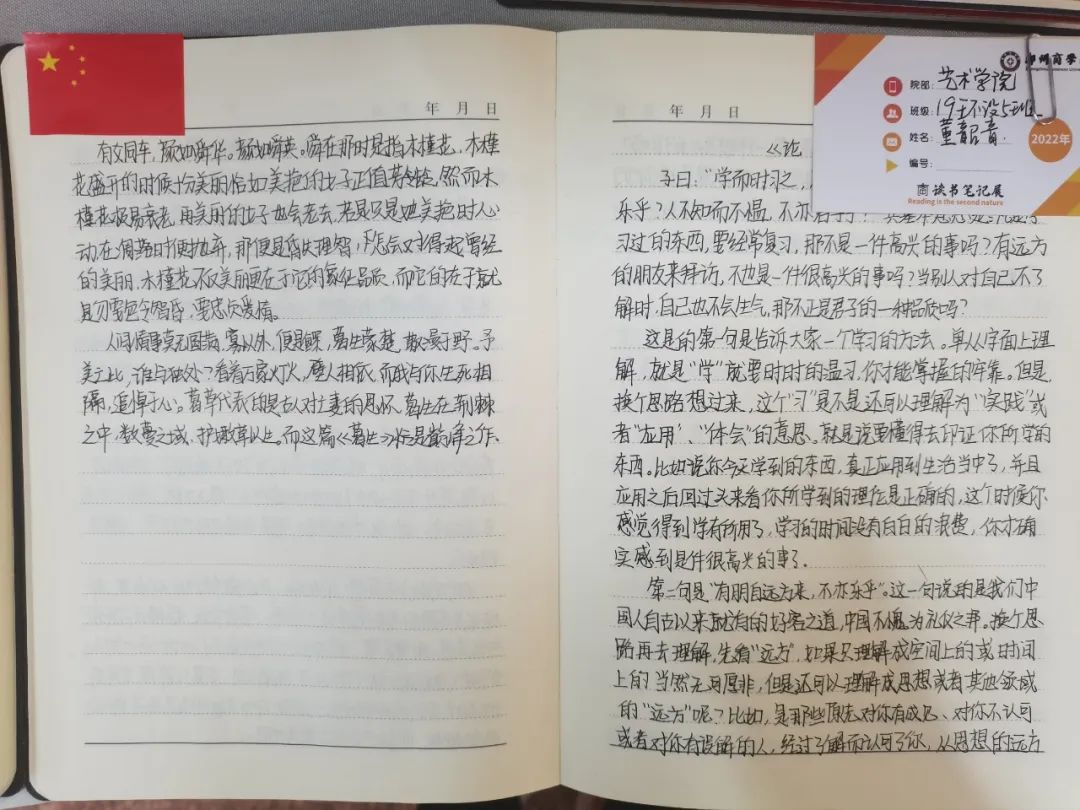 年 月 日
有女同车，颜如舜华。颜如舜英。舜在那时是指木槿花，木槿
花盛开的时候十份美丽恰如美艳的女子正值芳龄，然而木
槿花极易衰老，再美丽的女子也会老去，若是只是她美艳时心
动在凋落时便抛弃，那便是昏失理智，怎么对得起曾经
的美丽，木槿花不仅美丽更在于它的象征品质，而它的在于就
是勿要色令智昏，要忠贞爱情。
人间情事莫无国苦，寡以外，便是鳏，葛生蒙楚，蔹蔓于野。予
美亡此，谁与独处？看着万家灯火，璧人相依，而我与你生死相
隔，追悼于心。葛草代表的是古人对亡妻的思怀，葛生在荆棘
之中，蔹蔓之域，护墩草以生。而这篇《葛生》恰是巅峰之作。
年 月 日
《论
子曰：“学而时习之，
乐乎？人不知而不愠，不亦君子
习过的东西，要经常复习，那不是一件高兴的事吗？有远方
的朋友来拜访，不也是一件很高兴的事吗？当别人对自己不了
解时，自己也不会生气，那不正是君子的一种品质吗？
这是的第一句是告诉大家一个学习的方法。单从字面上理
解，就是“学”就要时时的温习，你才能掌握的牢靠。但是，
换个思路想过来，这个“习”是不是还可以理解为“实践”或
者“应用”、“体会”的意思。就是说要懂得去印证你所学的
东西。比如说你今天学到的东西，真正应用到生活当中了，并且
应用之后回过头来看你所学到的理论是正确的，这个时候你
感觉得到学有所用了，学习的时间没有白白的浪费，你才确
实感到是件很高兴的事了。
第二句是“有朋自远方来，不亦乐乎”。这一句说的是我们中
国人自古以来就有的好客之道，中国不愧为礼仪之邦。换个思
路再去理解，先看“远方”，如果只理解成空间上的或时间
上的当然无可厚非，但是还可以理解成思想或者其他领域
的“远方”呢？比如，是那些原先对你有成见、对你不认可
或者对你有误解的人，经过了解而认可了你，从思想的远方
商学
院部：艺术学院
班级：19环设5班
姓名：董韶音
编号：
2022年
商读书笔记展
Reading is the second nature